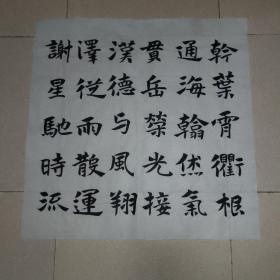 幹葉霄衢根
通海翰烋氣
貫岳榮光接
漢德与風翔
澤從雨散運
謝星馳時流